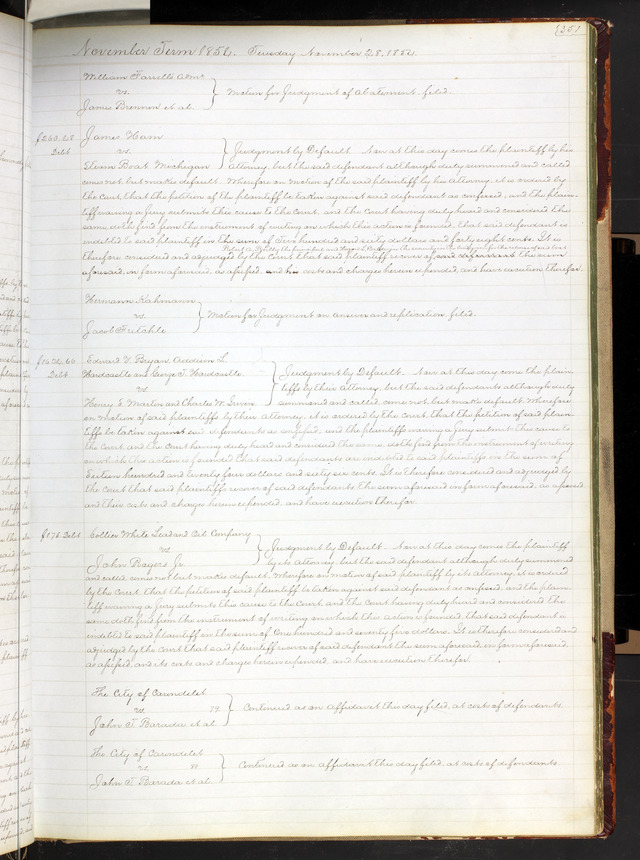 351
November Term 1854. Tuesday November 28, 1854.
William Farrell's Admr
vs.
James Brennon et al.
Motion for Judgment of Abatement filed.
$260.48 Debt
James Ham
vs.
Steam Boat Michigan
Judgment by Default. Now at this day comes the plaintiff by his
attorney, but the said defendant although duly summoned and called
comes not but makes default. Wherefore on motion of the said plaintiff by his attorney, it is ordered by
the Court, that the petition of the plaintiff be taken against said defendant as confessed, and the plain-
tiff waiving a Jury submits this cause to the Court, and the Court having duly heard and considered the
same, doth find from the instrument of writing on which this action is founded, that said defendant is
indebted to said plaintiff in the sum of Two hundred and sixty dollars and forty eight cents. It is
therefore considered and adjudged by the Court that said plaintiff recover of said defendant the sum
aforesaid, in form aforesaid, as assessed, and his costs and charges herein expended, and have execution therefor.
Hermann Kahmann
vs.
Jacob Fritchle
Motion for Judgment on answer and replication, filed.
$1624.66 Debt
Edward V. Bryan, S.
Hardcastle and George T. Hardcastle
vs.
Henry S. Martin and Charles W. Gwinn
Judgment by Default. Now at this day come the plain
tiffs by their Attorney, but the said defendants although duly
summoned and called, come not, but make default. Wherefore
on motion of said plaintiffs by their Attorney, it is ordered by the Court that the petition of said plain-
tiffs be taken against said defendants as confessed, and the plaintiffs waiving a Jury submit this cause to
the Court and the Court having duly heard and considered the same, doth find from the instrument of writing
on which this action is founded that said defendants are indebted to said plaintiffs in the sum of
Sixteen hundred and twenty four dollars and sixty six cents. It is therefore considered and adjudged by
the Court that said plaintiffs recover of said defendants the sum aforesaid in form aforesaid, as assessed
and their costs and charges herein expended, and have execution therefor.
$175 Debt
Collier White Lead and Oil Company
vs.
John Rogers Jr
Judgment by Default. Now at this day comes the plaintiff
by its attorney, but the said defendant although duly summoned
and called comes not but makes default. Wherefore on motion of said plaintiff by its attorney, it is ordered
by the Court that the petition of said plaintiff be taken against said defendant as confessed, and the plain-
tiff waiving a Jury submits this cause to the Court, and the Court having duly heard and considered the
same doth find from the instrument of writing on which this action is founded, that said defendant is
indebted to said plaintiff in the sum of One hundred and seventy five dollars. It is therefore considered and
adjudged by the Court that said plaintiff recover of said defendant the sum aforesaid, in form aforesaid,
as assessed, and its costs and charges herein expended, and have execution therefor.
The City of Carondelet
vs. 79.
John T. Barada et al
Continued as on Affidavit this day filed, at costs of defendants.
The City of Carondelet
vs.
John T. Barada et al.
Continued as on affidavit this day filed, at costs of defendants.